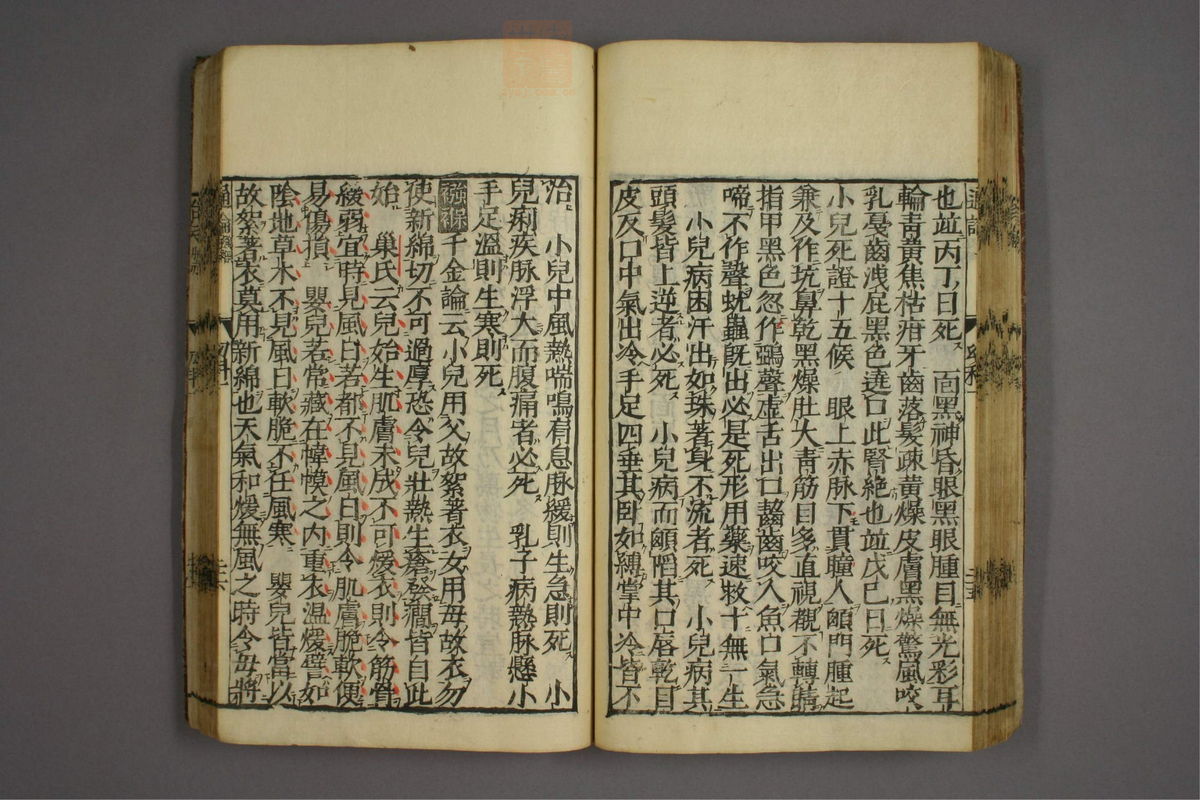 也並丙丁日死 面黑神昏眼黑眼腫目無光彩耳
輪青黃焦枯疳牙齒落髮疎黃燥皮膚黑燥驚風咬
乳戛齒洩屁黑色遶口此腎絶也並戊己日死
小兒死證十五候 眼上赤脉下貫瞳人顖門腫起
兼及作坑鼻乾黑燥肚大青筋目多直視覩不轉睛
指甲黑色忽作鵶聲虚舌出口齧齒咬人魚口氣急
啼不作聲蚘蟲旣出必是死形用藥速救十無一生
小兒病困汗出如珠著身不流者死 小兒病其
頭髮皆上逆者必死 小兒病而顖陷其口唇乾目
皮反口中氣出冷手足四垂其卧如縛掌中冷皆不
治 小兒中風熱喘鳴肩息脉緩則生急則死 小
兒痢疾脉浮大而腹痛者必死 乳子病熱脉懸小
手足溫則生寒則死
襁褓 千金論云小兒用父故絮著衣女用母故衣勿
使新綿切不可過厚恐令兒壯熱生瘡發癇皆自此
始 巢氏云兒始生肌膚未成不可煖衣則令筋骨
緩弱宜時見風日若都不見風日則令肌膚脆軟便
易傷損 嬰兒若常藏在幃幙之内重衣温煖譬如
陰地草木不見風日軟脆不任風寒 嬰兒皆當以
故絮著衣莫用新綿也天氣和煖無風之時令母將